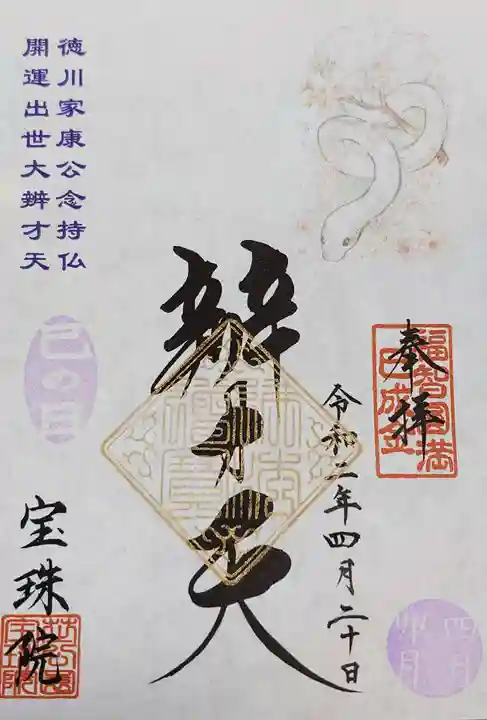 奉拝
福智富満
巳成金
令和二年四月二十日
辨才天
徳川家康公念持仏
開運出世大辨才天
巳の日
宝珠院
四月
卯月